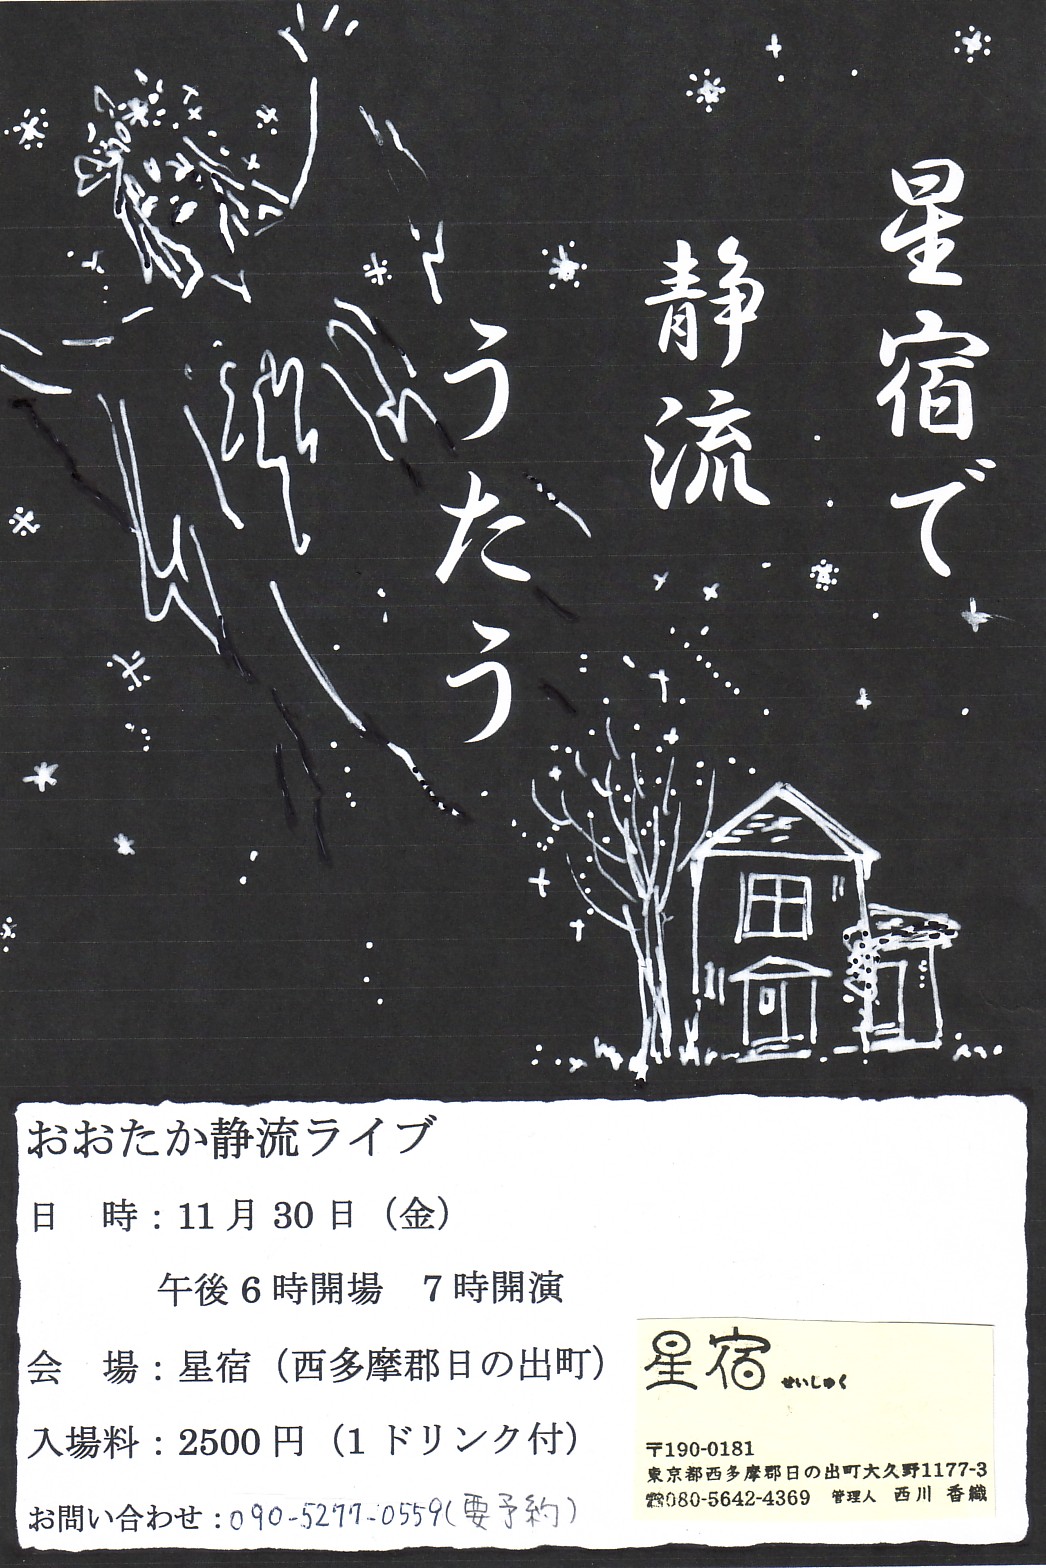 星宿で
静流
うたう
おおたか静流ライブ
日　時：11月30日（金）
午後6時開場　7時開演
会　場：星宿（西多摩郡日の出町）
入場料：2500円（1ドリンク付）
お問い合わせ：090-5277-0559（要予約）
星宿 せいしゅく
〒190-0181
東京都西多摩郡日の出町大久野1177-3
☎080-5642-4369　管理人　西川　香織